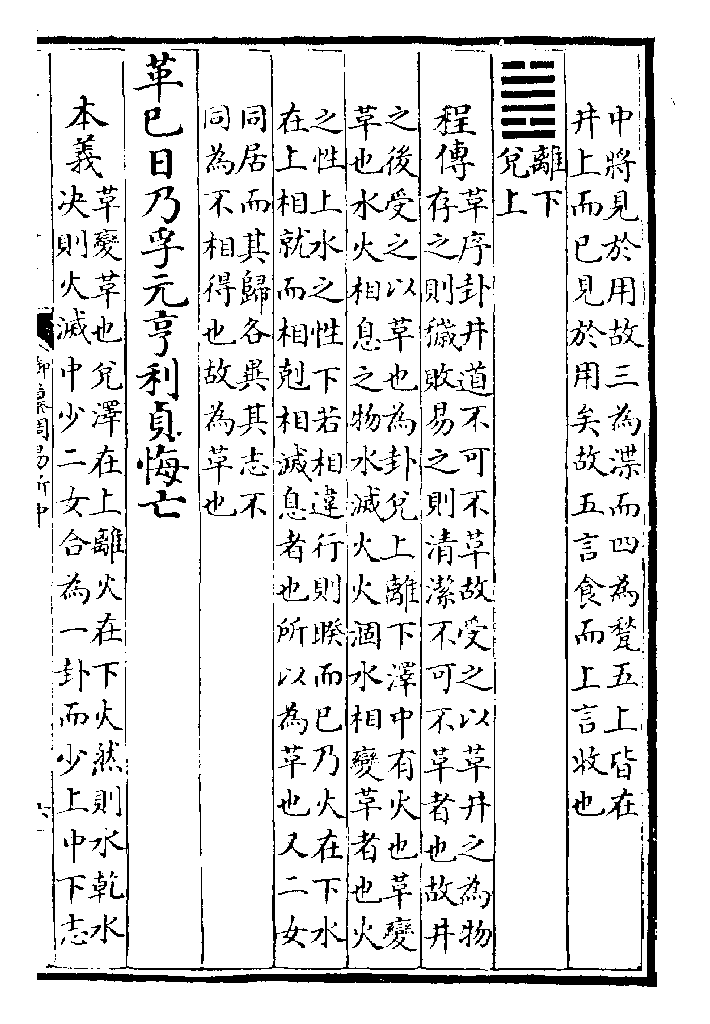 中將見於用故三為渫而四為甃五上皆在
井上而已見於用矣故五言食而上言收也
䷰離下
兌上
程傳革序卦井道不可不革故受之以革井之為物
存之則穢敗易之則清潔不可不革者也故井
之後受之以革也為卦兌上離下澤中有火也革變
革也水火相息之物水滅火火涸水相變革者也火
之性上水之性下若相違行則睽而已乃火在下水
在上相就而相剋相滅息者也所以為革也又二女
同居而其歸各異其志不
同為不相得也故為革也
革巳日乃孚元亨利貞悔亡
本義革變革也兌澤在上離火在下火然則水乾水
决則火滅中少二女合為一卦而少上中下志
御纂周易折中